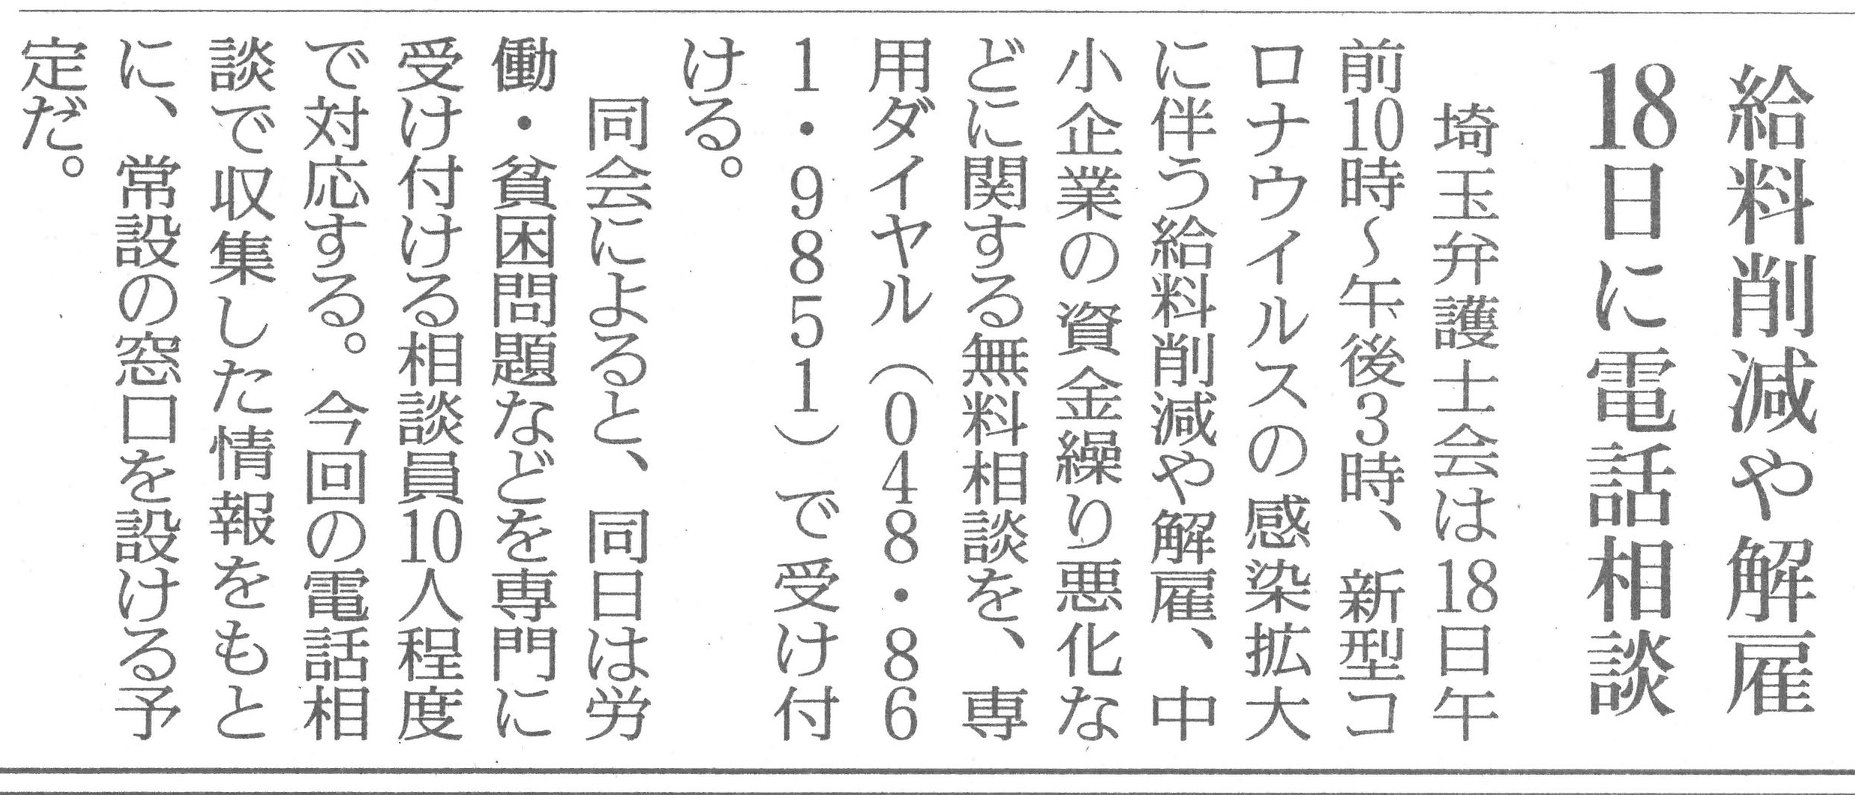 給料削減や解雇
18日に電話相談
埼玉弁護士会は18日午
前10時～午後3時、新型コ
ロナウイルスの感染拡大
に伴う給料削減や解雇、中
小企業の資金繰り悪化な
どに関する無料相談を、専
用ダイヤル（048・86
1・9851）で受け付
ける。
同会によると、同日は労
働・貧困問題などを専門に
受け付ける相談員10人程度
で対応する。今回の電話相
談で収集した情報をもと
に、常設の窓口を設ける予
定だ。